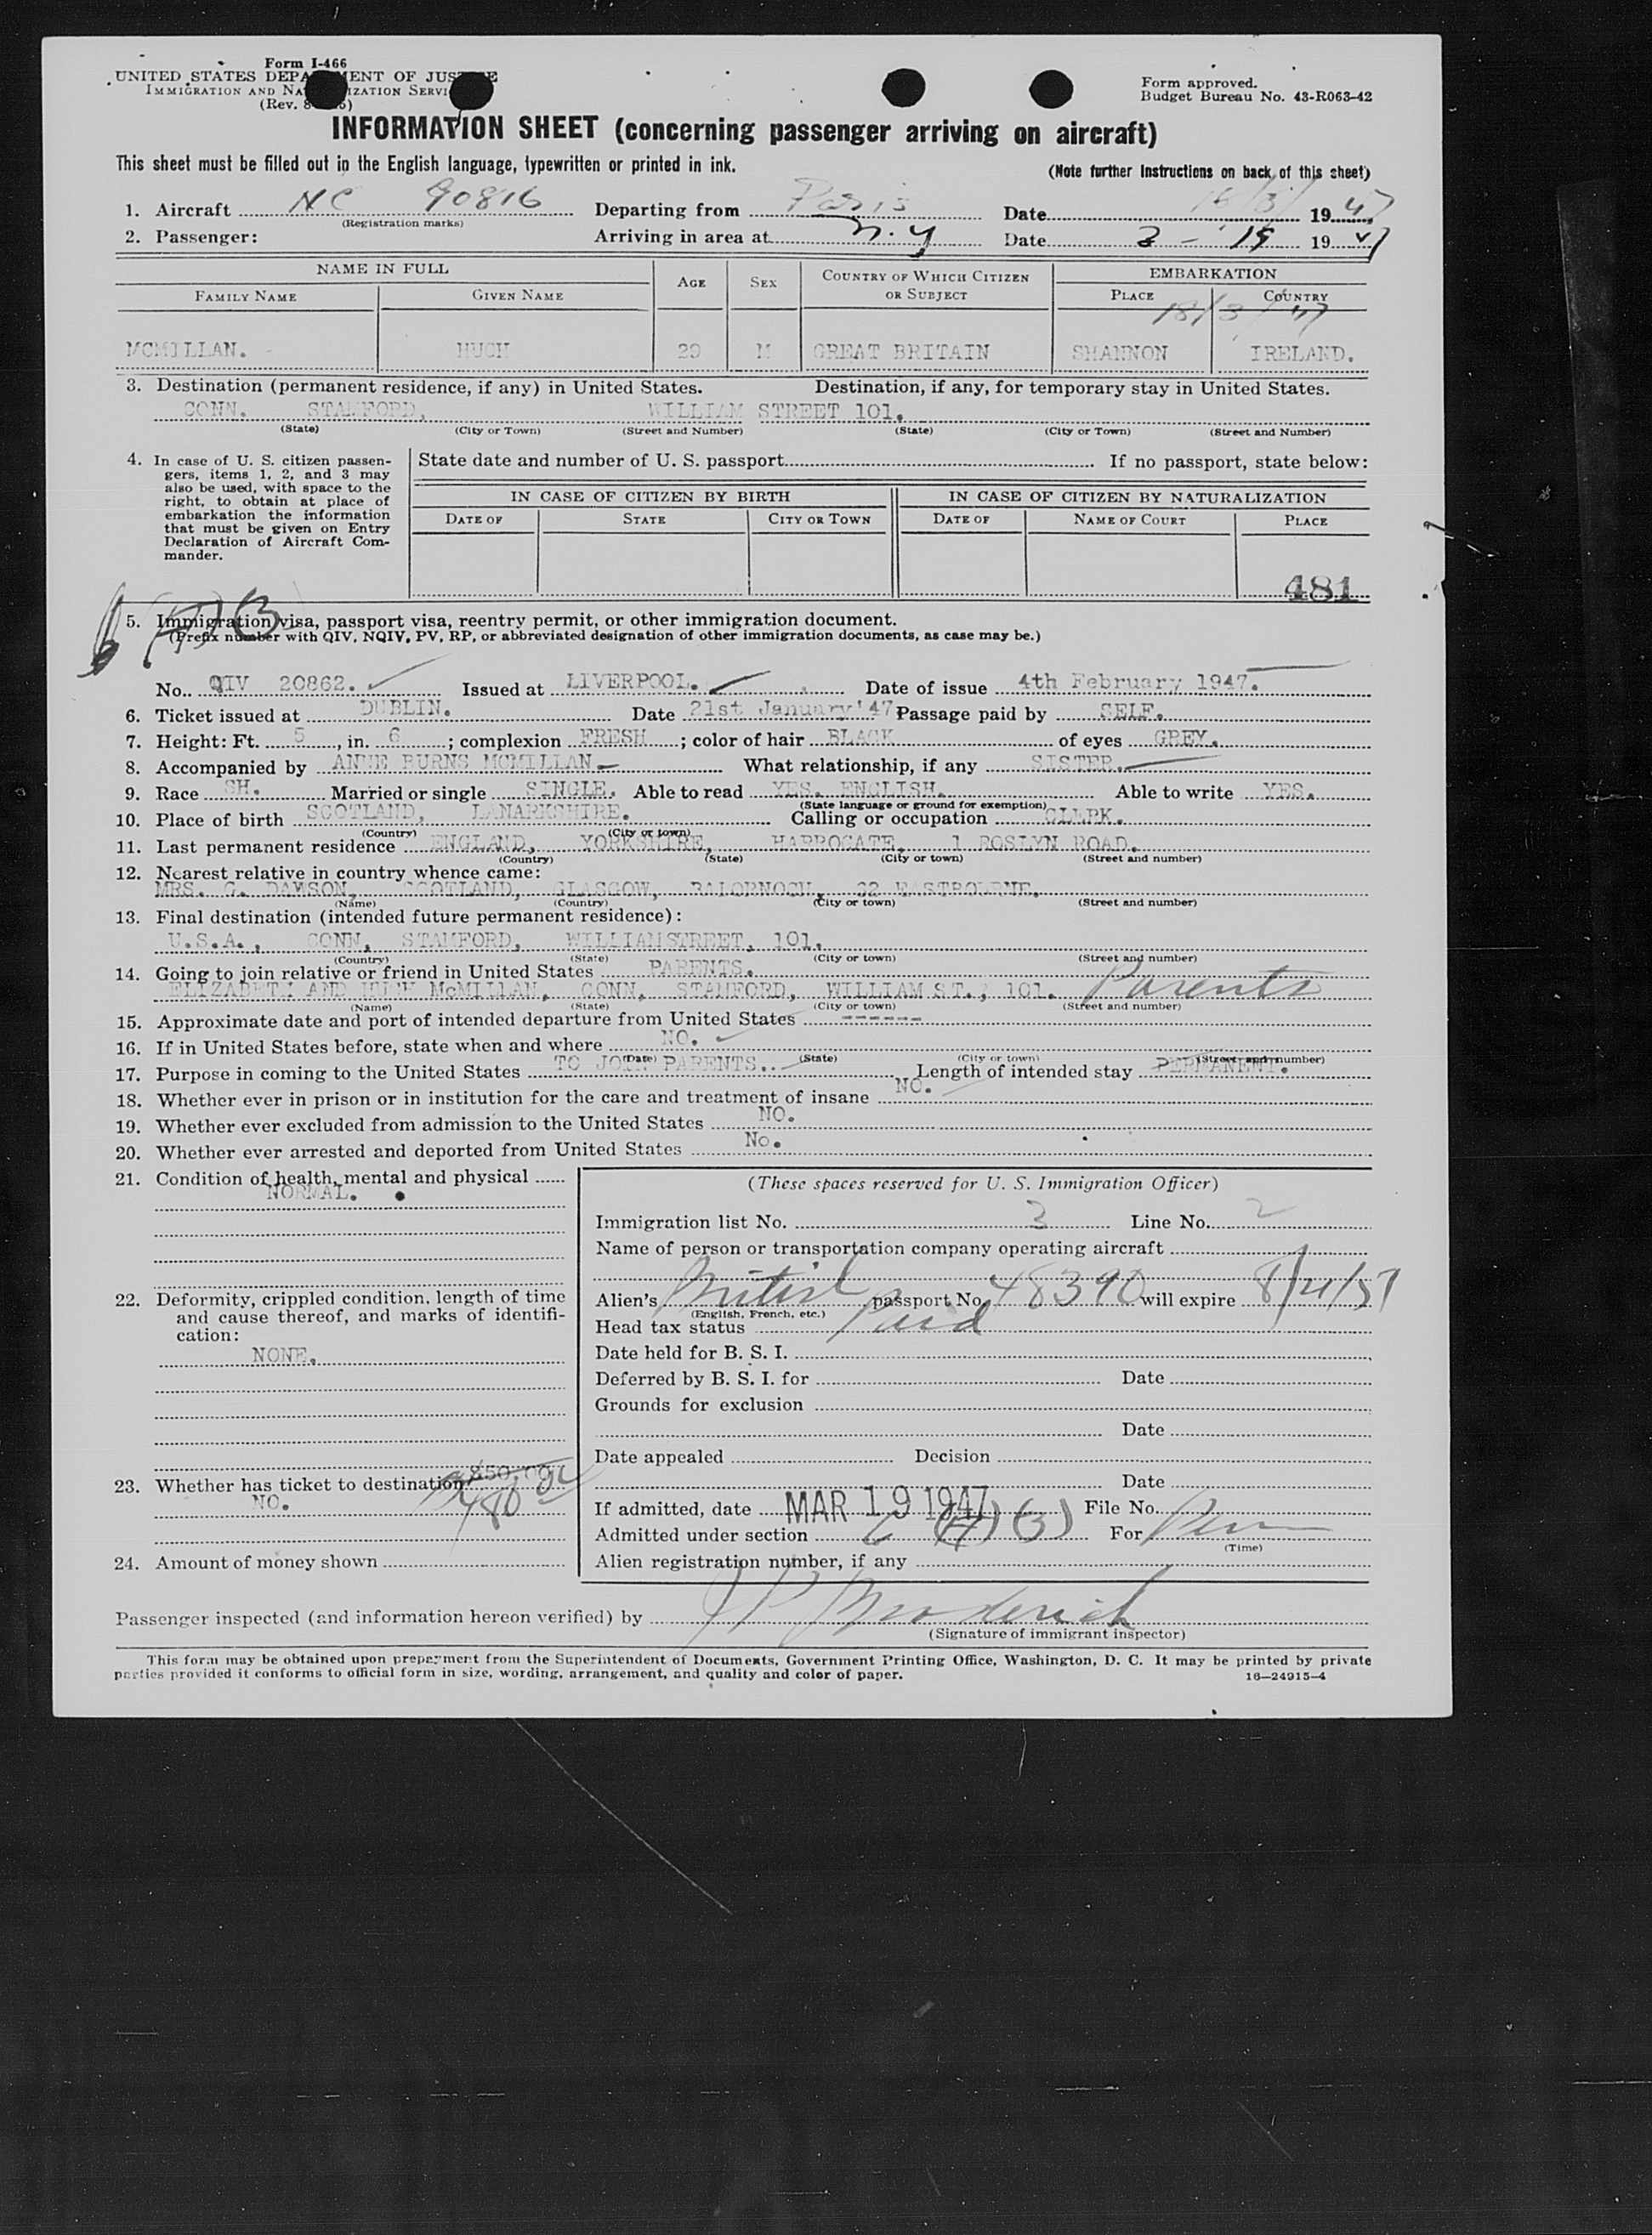 Form I-466
UNITED STATES DEPARTMENT OF JUSTICE
IMMIGRATION AND NATURALIZATION SERVICE
(Rev.
Form approved.
Budget Bureau No. 43-R063-42
INFORMATION SHEET (concerning passenger arriving on aircraft)
This sheet must be filled out in the English language, typewritten or printed in ink.
(Note further instructions on back of this sheet)
1. Aircraft NC 90816 Departing from Paris Date 1947
(Registration marks)
2. Passenger: Arriving in area at N.Y Date 3-19 1947
NAME IN FULL AGE SEX COUNTRY OF WHICH CITIZEN OR SUBJECT EMBARKATION
FAMILY NAME GIVEN NAME PLACE COUNTRY
18/3/47
MCMILLAN. HUGH 29 M GREAT BRITAIN SHANNON IRELAND.
3. Destination (permanent residence, if any) in United States. Destination, if any, for temporary stay in United States.
CONN. STAMFORD, WILLIAM STREET 101.
(State) (City or Town) (Street and Number) (State) (City or Town) (Street and Number)
4. In case of U. S. citizen passengers, items 1, 2, and 3 may also be used, with space to the right, to obtain at place of embarkation the information that must be given on Entry Declaration of Aircraft Commander.
State date and number of U. S. passport If no passport, state below:
IN CASE OF CITIZEN BY BIRTH IN CASE OF CITIZEN BY NATURALIZATION
DATE OF STATE CITY OR TOWN DATE OF NAME OF COURT PLACE
481
5. Immigration visa, passport visa, reentry permit, or other immigration document.
(Prefix number with QIV, NQIV, PV, RP, or abbreviated designation of other immigration documents, as case may be.)
No. QIV 20862. Issued at LIVERPOOL. Date of issue 4th February 1947.
6. Ticket issued at DUBLIN. Date 21st January '47 Passage paid by SELF.
7. Height: Ft. 5, in. 6; complexion FRESH; color of hair BLACK of eyes GREY.
8. Accompanied by ANNE BURNS MCMILLAN What relationship, if any SISTER.
9. Race SH. Married or single SINGLE. Able to read YES. ENGLISH. Able to write YES.
(State language or ground for exemption)
10. Place of birth SCOTLAND, LANARKSHIRE. Calling or occupation CLERK.
(Country) (City or town)
11. Last permanent residence ENGLAND, YORKSHIRE, HARROGATE, 1 ROSLYN ROAD.
(Country) (State) (City or town) (Street and number)
12. Nearest relative in country whence came:
MRS. G. DAWSON, SCOTLAND, GLASGOW, BALORNOCK, 62 EASTBOURNE.
(Name) (Country) (City or town) (Street and number)
13. Final destination (intended future permanent residence):
U.S.A., CONN, STAMFORD, WILLIAMSTREET, 101.
(Country) (State) (City or town) (Street and number)
14. Going to join relative or friend in United States PARENTS.
ELIZABETH AND HUGH McMILLAN, CONN, STAMFORD, WILLIAM ST., 101. Parents
(Name) (State) (City or town) (Street and number)
15. Approximate date and port of intended departure from United States ------
16. If in United States before, state when and where NO.
(Date) (State) (City or town) (Street and number)
17. Purpose in coming to the United States TO JOIN PARENTS. Length of intended stay PERMANENT.
18. Whether ever in prison or in institution for the care and treatment of insane NO.
19. Whether ever excluded from admission to the United States NO.
20. Whether ever arrested and deported from United States No.
21. Condition of health, mental and physical
NORMAL.
22. Deformity, crippled condition, length of time and cause thereof, and marks of identification:
NONE.
23. Whether has ticket to destination
NO.
480
24. Amount of money shown
(These spaces reserved for U. S. Immigration Officer)
Immigration list No. 3 Line No. 2
Name of person or transportation company operating aircraft
Alien's British passport No. 48390 will expire 8/21/51
(English, French, etc.)
Head tax status Paid
Date held for B. S. I.
Deferred by B. S. I. for Date
Grounds for exclusion
Date
Date appealed Decision
Date
If admitted, date MAR 19 1947 File No.
Admitted under section 6 (A) (3) For Perm
(Time)
Alien registration number, if any
Passenger inspected (and information hereon verified) by
(Signature of immigrant inspector)
This form may be obtained upon prepayment from the Superintendent of Documents, Government Printing Office, Washington, D. C. It may be printed by private
parties provided it conforms to official form in size, wording, arrangement, and quality and color of paper. 16—24915-4